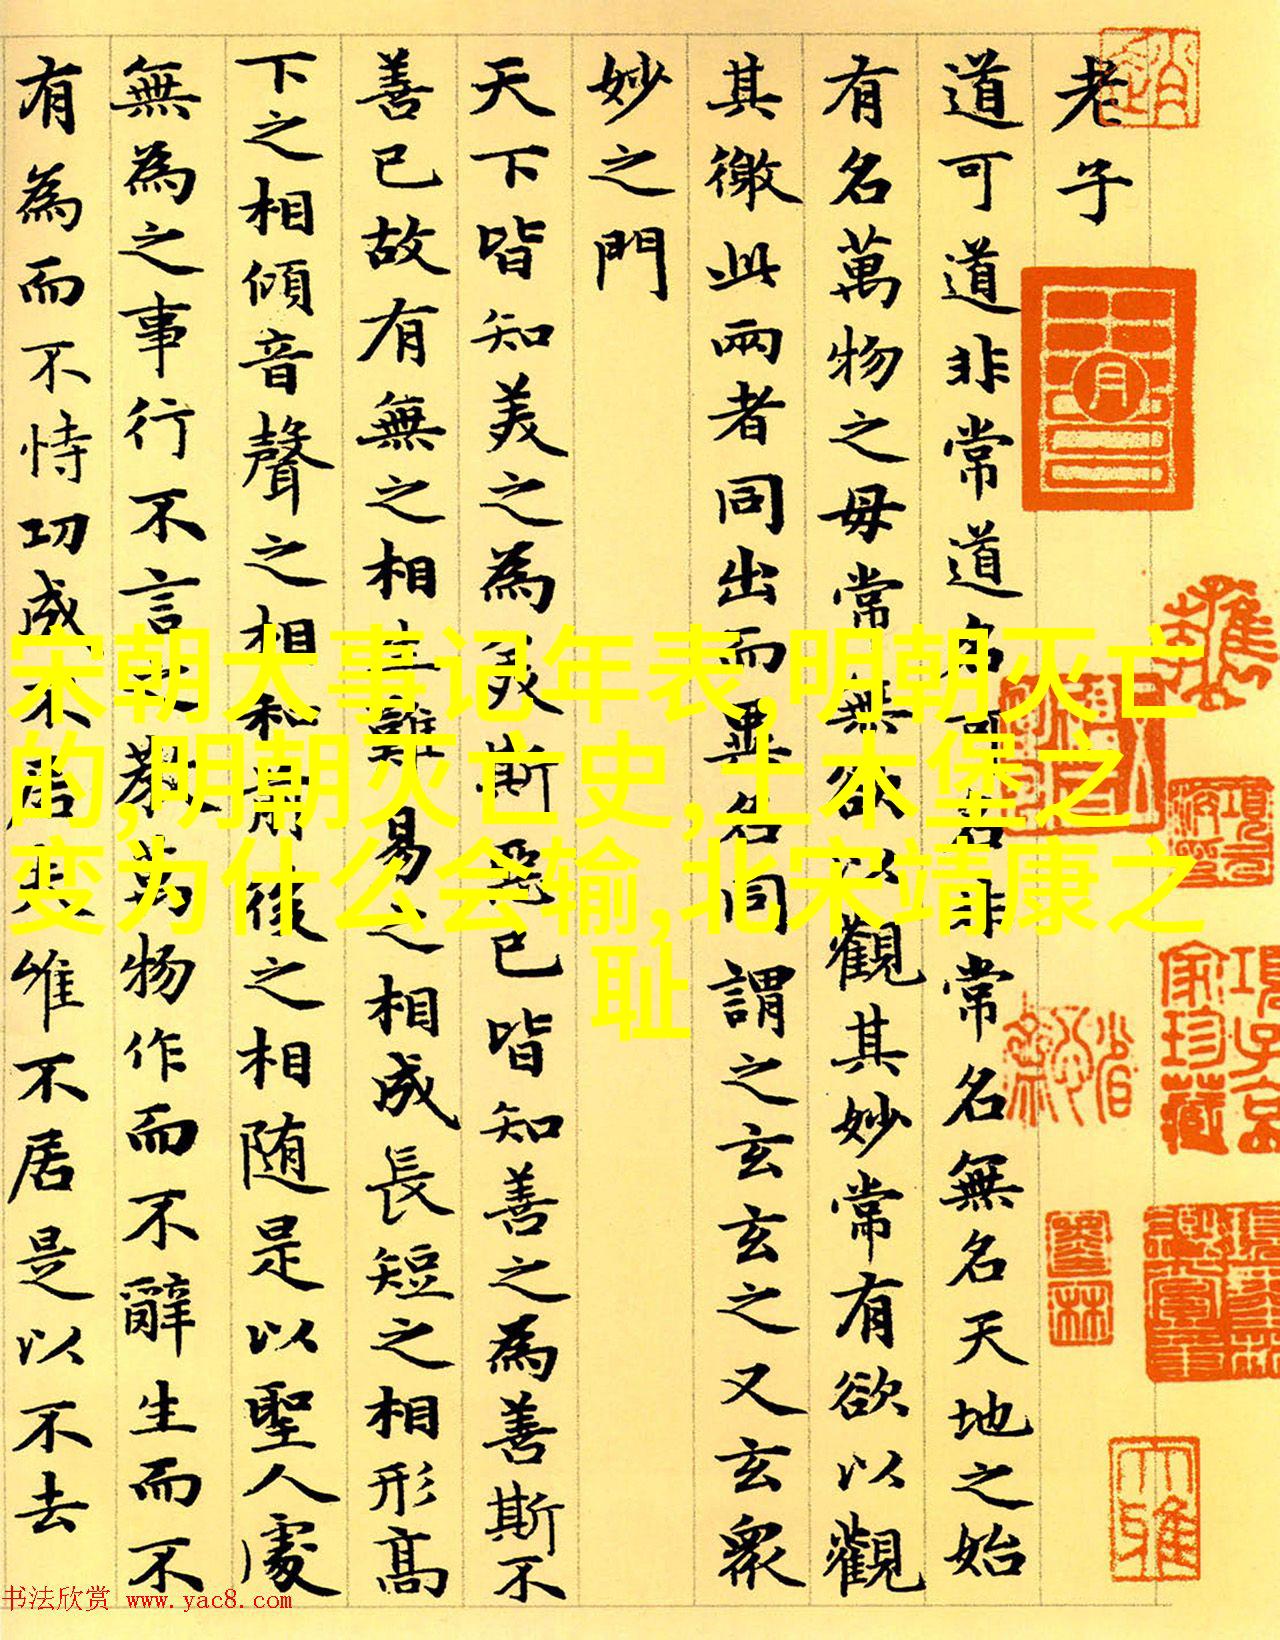 老子
道可道非常道名可名非常名無名天地之始
有名萬物之母常無欲以觀其妙常有欲以觀
其徼此兩者同出而異名同謂之玄玄之又玄衆
妙之門
天下皆知美之為美斯惡已皆知善之為善斯不
善已故有無之相生難易之相成長短之相形髙
下之相傾音聲之相和前後之相随是以聖人處
無為之事行不言之教萬物作而不辭生而不
有為而不恃功成不居夫惟不居是以不去
宋朝大事记年表,明朝灭亡
的,明朝灭亡史,土木堡之
变为什么会输,北宋靖康之
耻
項子京
家珍藏
大雅
书法欣赏 www.yac8.com